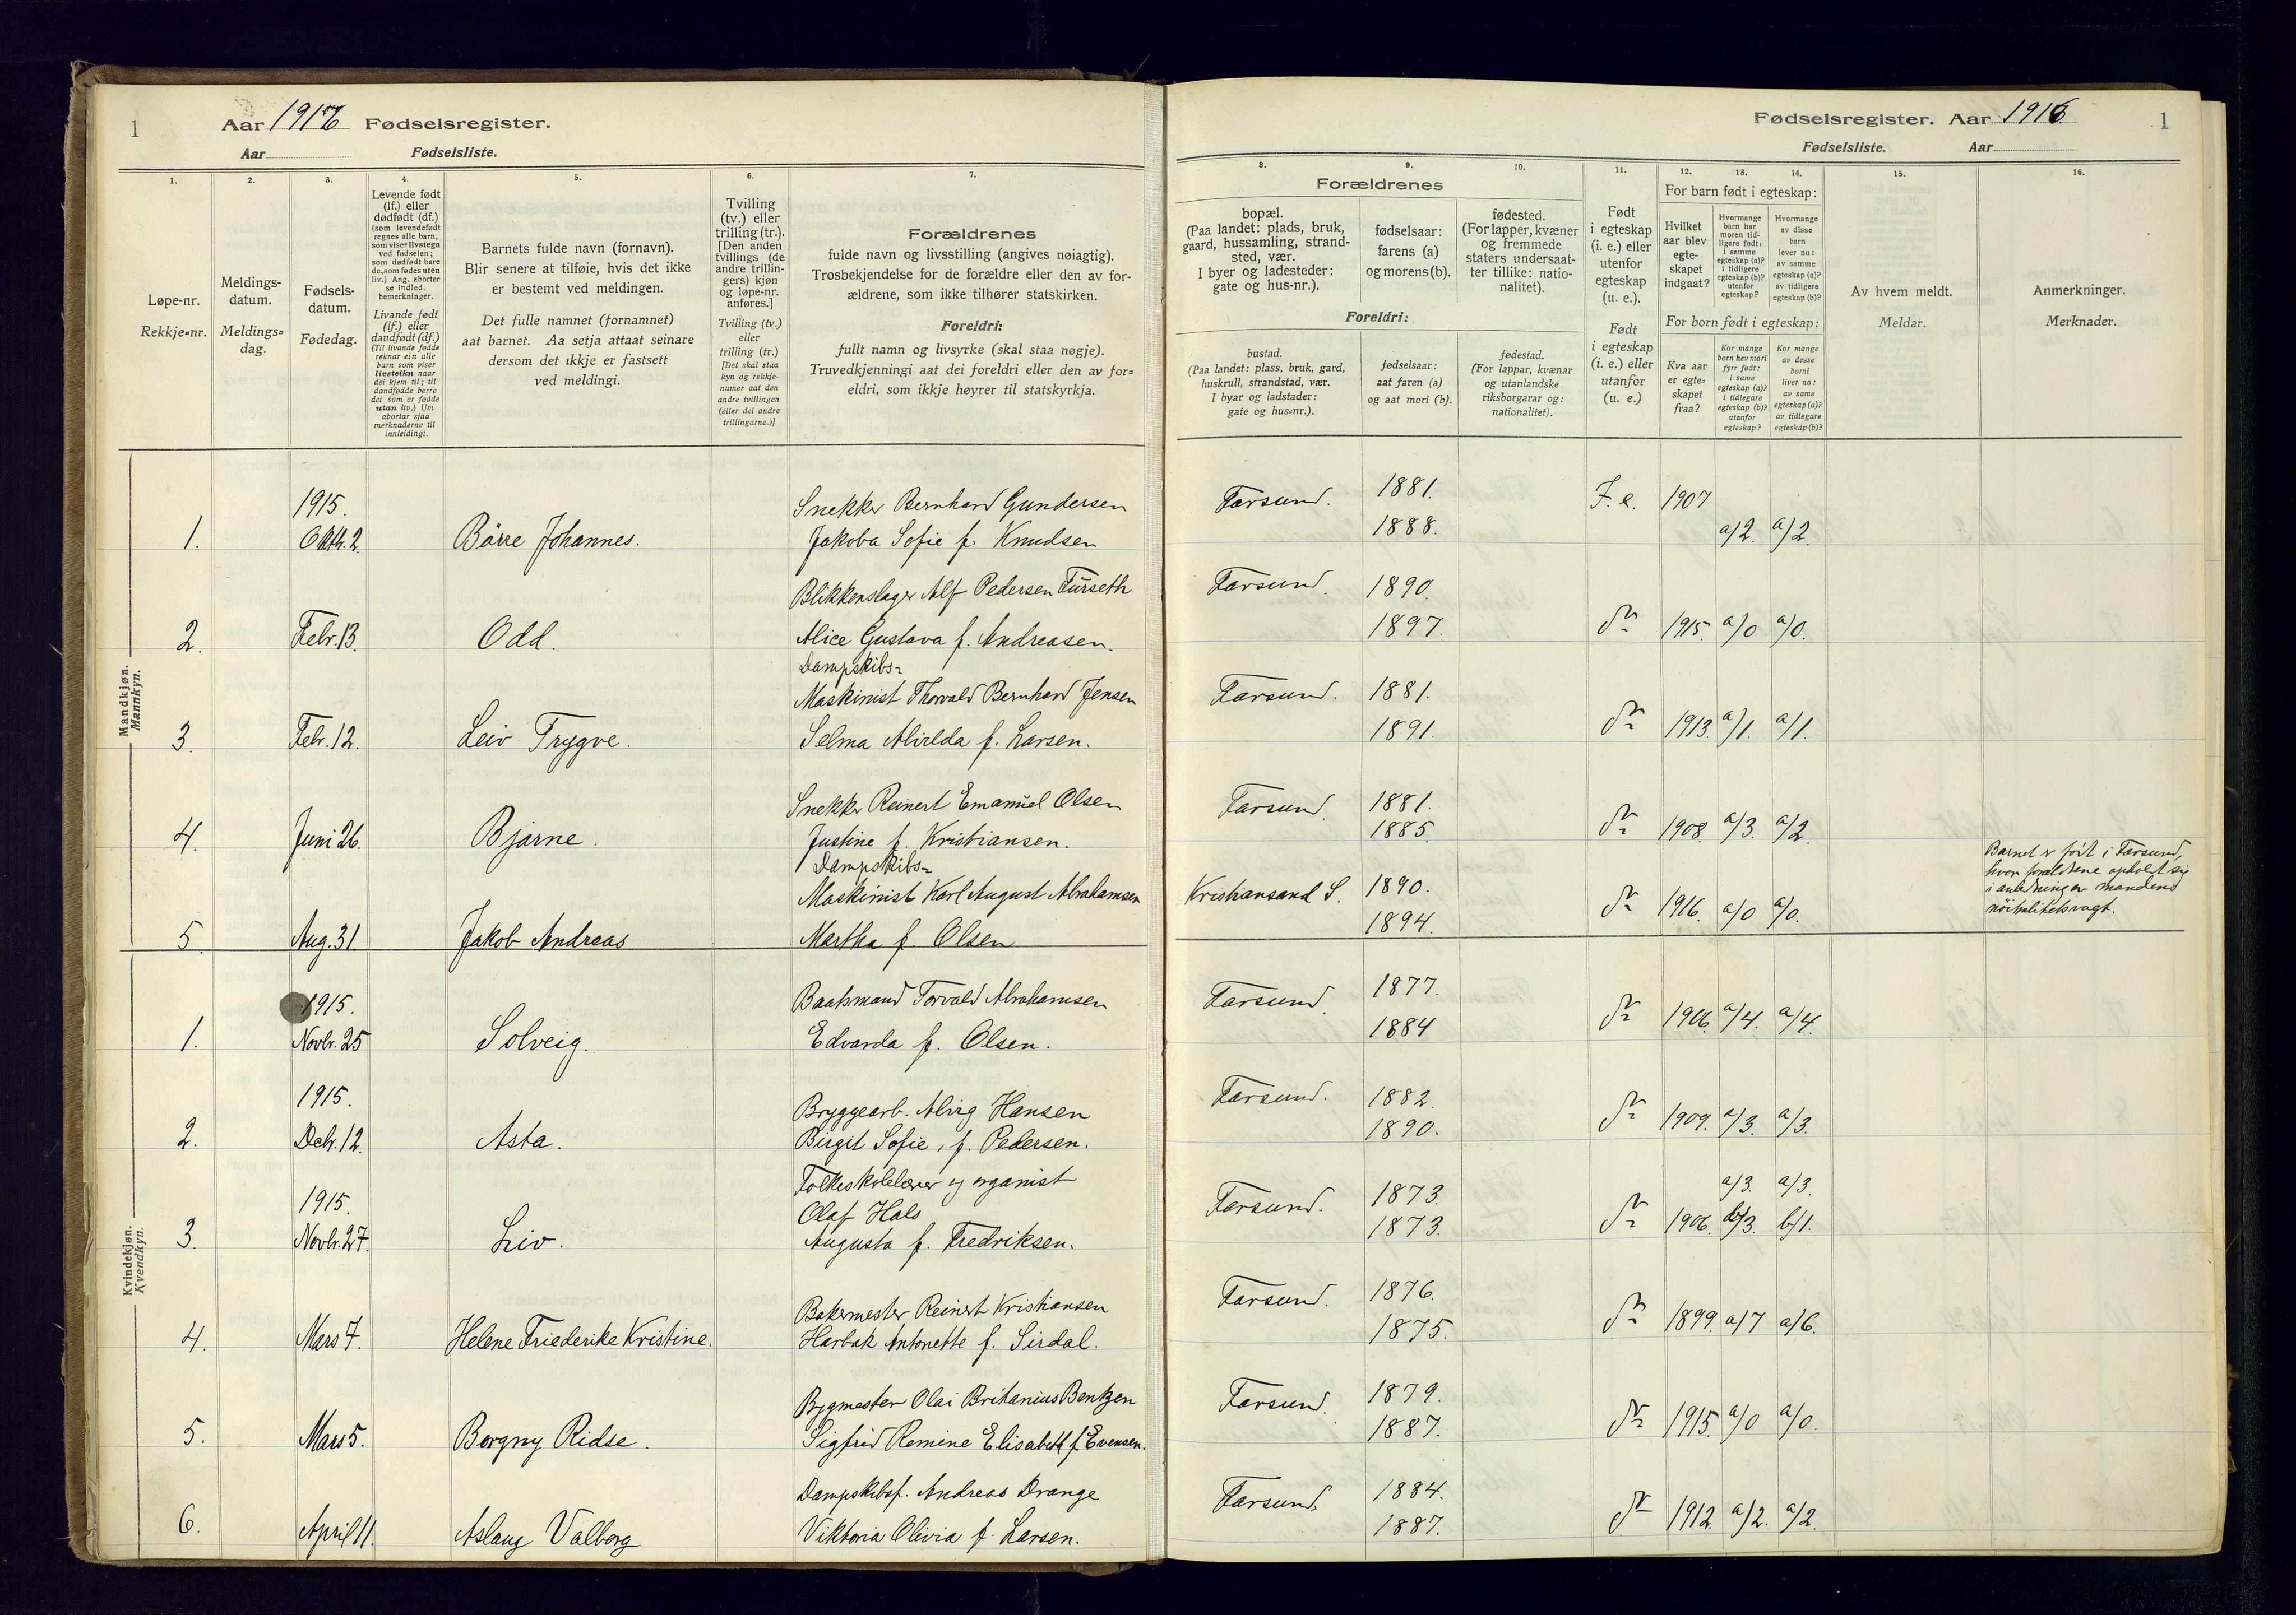 1
Aar 1916 Fødselsregister.
Aar Fødselsliste.
1.
2.
3.
4.
5.
6.
7.
Løpe-nr.
Rekkje=nr.
Meldings-
datum.
Meldings=
dag.
Fødsels-
datum.
Fødedag.
Levende født
(lf.) eller
dødfødt (df.)
(som levendefødt
regnes alle barn,
som viser livstegn
ved fødselen;
som dødfødt bare
de, som fødes uten
liv.) Ang. aborter
se indled.
bemerkninger.
Livande født
(lf.) eller
daudfødt (df.)
(Til livande fødde
reknar ein alle
barn som viser
livsteikn naar
dei kjem til; til
daudfødde berre
dei som er fødde
utan liv.) Um
abortar sjaa
merknaderne til
innleidingi.
Barnets fulde navn (fornavn).
Blir senere at tilføie, hvis det ikke
er bestemt ved meldingen.
Det fulle namnet (fornamnet)
aat barnet. Aa setja attaat seinare
dersom det ikkje er fastsett
ved meldingi.
Tvilling
(tv.) eller
trilling (tr.).
[Den anden
tvillings (de
andre trillin-
gers) kjøn
og løpe-nr.
anføres.]
Tvilling (tv.)
eller
trilling (tr.)
[Det skal staa
kyn og rekkje-
numer aat den
andre tvillingen
(eller dei andre
trillingarne.)]
Forældrenes
fulde navn og livsstilling (angives nøiagtig).
Trosbekjendelse for de forældre eller den av for-
ældrene, som ikke tilhører statskirken.
Foreldri:
fullt namn og livsyrke (skal staa nøgje).
Truvedkjenningi aat dei foreldri eller den av for=
eldri, som ikkje høyrer til statskyrkja.
Fødselsregister. Aar 1916. 1
Fødselsliste. Aar
8.
9.
10.
11.
12.
13.
14.
15.
16.
Forældrenes
bopæl.
(Paa landet: plads, bruk,
gaard, hussamling, strand-
sted, vær.
I byer og ladesteder:
gate og hus-nr.).
fødselsaar:
farens (a)
og morens (b).
fødested.
(For lapper, kvæner
og fremmede
staters undersaat-
ter tillike: natio-
nalitet).
Foreldri:
bustad.
(Paa landet: plass, bruk, gard,
huskrull, strandstad, vær.
I byar og ladstader:
gate og hus=nr.).
fødselsaar:
aat faren (a)
og aat mori (b).
fødestad.
(For lappar, kvænar
og utanlandske
riksborgarar og:
nationalitet).
Født
i egteskap
(i. e.) eller
utenfor
egteskap
(u. e.).
Født
i egteskap
(i. e.) eller
utanfor
(u. e.)
For barn født i egteskap:
Hvilket
aar blev
egte-
skapet
indgaat?
Hvormange
barn har
moren tid-
ligere født:
i samme
egteskap (a)?
i tidligere
egteskap (b)?
utenfor
egteskap?
Hvormange
av disse
barn
lever nu:
av samme
egteskap (a)?
av tidligere
egteskap (b)?
For born født i egteskap:
Kva aar
er egte=
skapet
fraa?
Kor mange
born hev mori
fyrr født:
i same
egteskap (a)?
i tidlegare
egteskap (b)?
utanfor
egteskap?
Kor mange
av desse
borni
liver no:
av same
egteskap (a)?
av tidlegare
egteskap (b)?
Av hvem meldt.
Meldar.
Anmerkninger.
Merknader.
Mandkjøn.
Mannkyn.
1915. Snekker Bernhard Gundersen Farsund. 1881. F. e. 1907
1. Oktb. 2. Börre Johannes. Jakoba Sofie f. Knudsen 1888. a/2. a/2.
Blikkenslager Alf Pedersen Furseth Farsund. 1890.
2. Febr. 13. Odd. Alice Gustava f. Andreasen. 1897. 1915. a/0 a/0.
Dampskibs-
Maskinist Thorvald Bernhard Jensen Farsund. 1881.
3. Febr. 12. Leiv Trygve. Selma Alvilda f. Larsen. 1891. 1913. a/1. a/1.
Snekker Reinert Emanuel Olsen Farsund. 1881.
4. Juni 26. Bjarne. Justine f. Kristiansen. 1885. 1908. a/3. a/2.
Dampskibs-
Maskinist Karl August Abrahamsen Kristiansand S. 1890.
5. Aug. 31 Jakob Andreas Martha f. Olsen 1894. 1916. a/0 a/0.
Barnet er født i Farsund,
hvor forældrene opholdt sig
i anledning av mandens
nöitralitetsvagt.
Kvindekjøn.
Kvendkyn.
1915. Baatsmand Torvald Abrahamsen Farsund. 1877.
1. Novbr. 25 Solveig. Edvarda f. Olsen. 1884 1906. a/4. a/4.
1915. Bryggearb. Alvig Hansen Farsund. 1882.
2. Debr. 12. Asta. Birgit Sofie, f. Pedersen. 1890. 1909. a/3. a/3.
Folkeskolelærer og organist a/3. a/3.
1915. Olaf Hals Farsund. 1873.
3. Novbr. 27. Liv. Augusta f. Fredriksen. 1873. 1906. b/3. b/1.
Bakermester Reinert Kristiansen Farsund. 1876.
4. Mars 7. Helene Friederike Kristine. Harbak Antonette f. Sirdal. 1875. 1899. a/7 a/6.
Bygmester Olai Britanius Bentzen Farsund. 1879.
5. Mars 5. Borgny Ridse. Sigfrid Remine Elisabeth f. Evensen. 1887. 1915. a/0 a/0.
Dampskibsf. Andreas Drange Farsund. 1884.
6. April 11. Aslaug Valborg Viktoria Olivia f. Larsen. 1887. 1912. a/2. a/2.